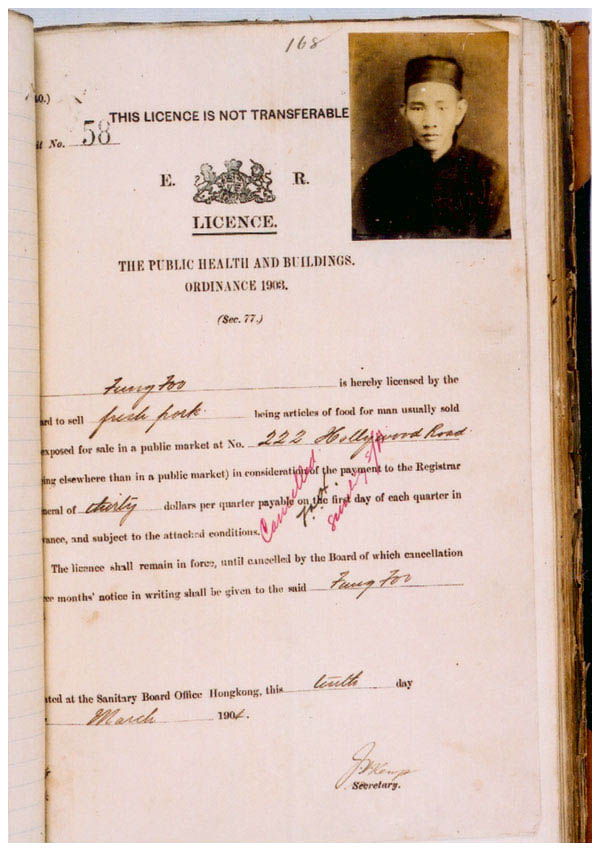 168
40.)
THIS LICENCE IS NOT TRANSFERABLE
No. 58
E. R.
LICENCE.
THE PUBLIC HEALTH AND BUILDINGS.
ORDINANCE 1903.
(Sec. 77.)
Fung Foo is hereby licensed by the
ard to sell fresh pork being articles of food for man usually sold
exposed for sale in a public market at No. 222 Hollywood Road
ing elsewhere than in a public market) in consideration of the payment to the Registrar
neral of thirty dollars per quarter payable on the first day of each quarter in
vance, and subject to the attached conditions.
Cancelled
The licence shall remain in force, until cancelled by the Board of which cancellation
ee months' notice in writing shall be given to the said Fung Foo
ated at the Sanitary Board Office Hongkong, this tenth day
March 1904.
Secretary.